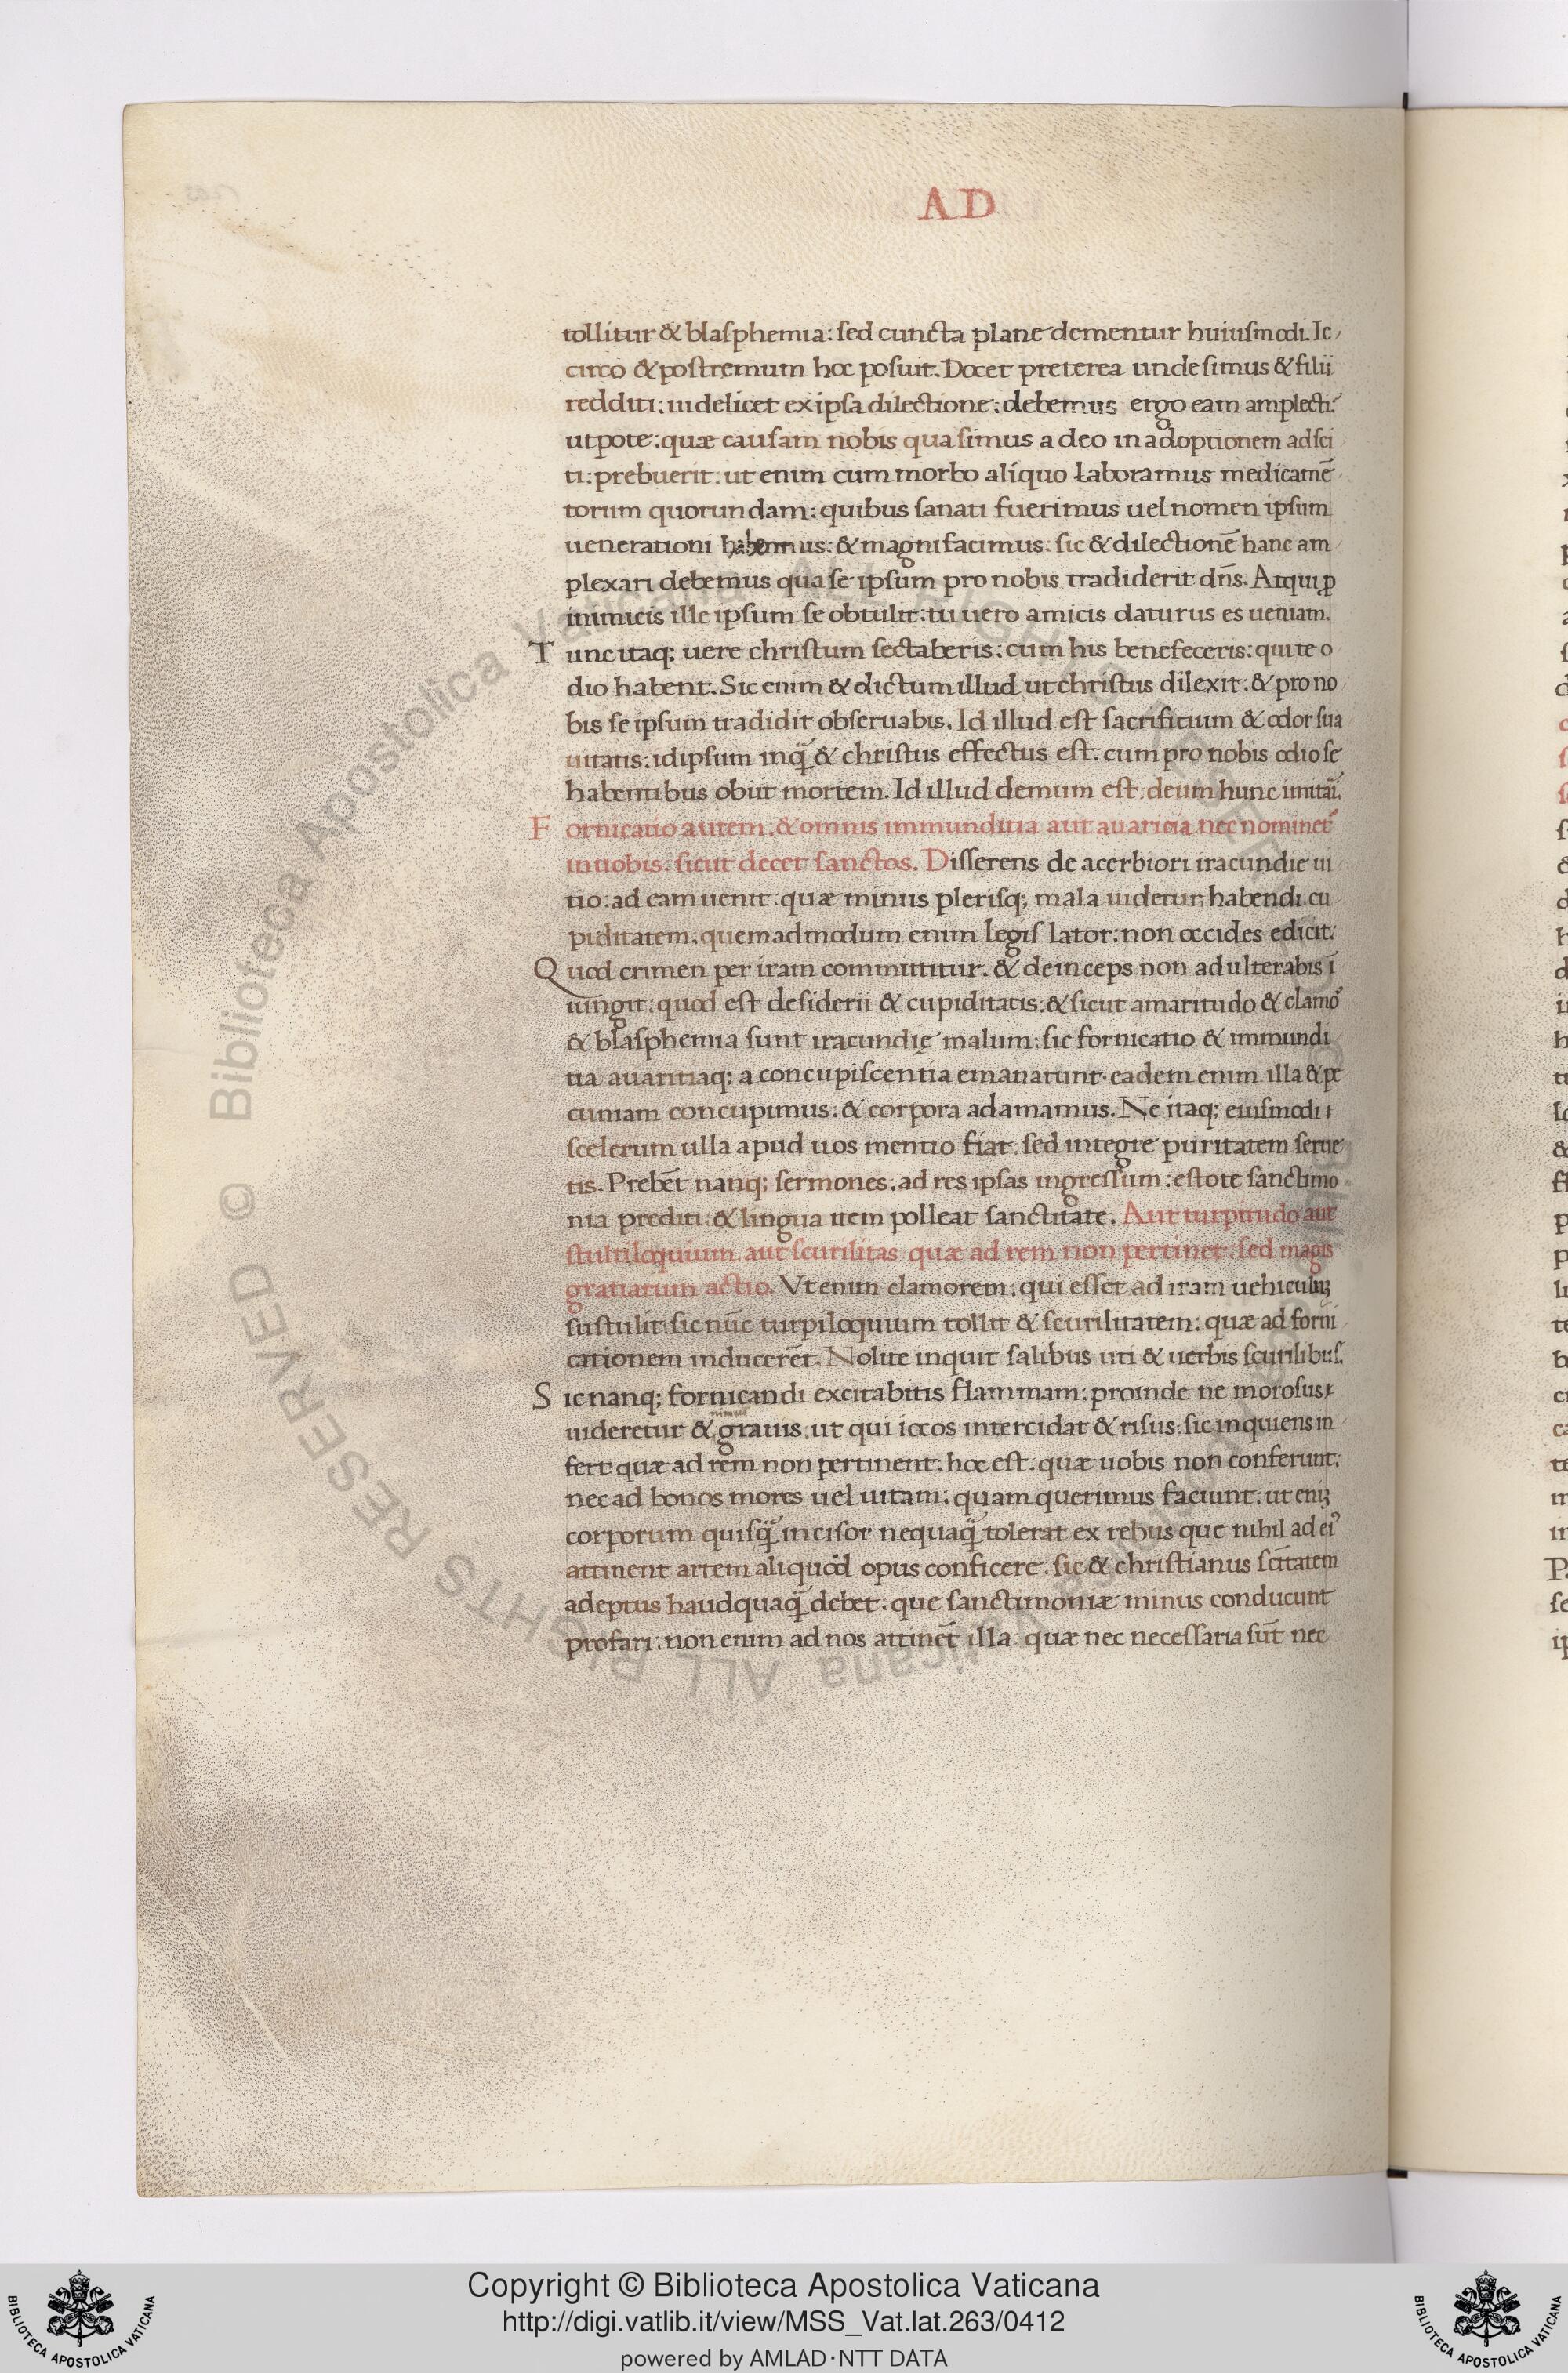 AD
tollitur & blasphemia: sed cuncta plane dementur huiusmodi. Ic
circo & postremum hoc posuit. Docet preterea unde simus & filii
redditi: uidelicet ex ipsa dilectione: debemus ergo eam amplecti:
utpote: quæ causam nobis qua simus a deo in adoptionem adsci
ti: prebuerit: ut enim cum morbo aliquo laboramus medicamē
torum quorundam: quibus sanati fuerimus uel nomen ipsum
uenerationi habemus: & magnifacimus: sic & dilectionē hanc am
plexari debemus qua se ipsum pro nobis tradiderit dn̄s. Atqui ꝓ
inimicis ille ipsum se obtulit: tu uero amicis daturus es ueniam.
Tunc itaq; uere christum sectaberis: cum his benefeceris: qui te o
dio habent. Sic enim & dictum illud ut christus dilexit: & pro no
bis se ipsum tradidit obseruabis. Id illud est sacrificium & odor sua
uitatis: idipsum inq̃ & christus effectus est: cum pro nobis odio se
habentibus obiit mortem. Id illud demum est: deum hunc imitãi.
Fornicatio autem: & omnis immunditia aut auaricia nec nominet᷑
in uobis. sicut decet sanctos. Disserens de acerbiori iracundie ui
tio: ad eam uenit: quæ minus plerisq; mala uidetur: habendi cu
piditatem. quemadmodum enim legis lator: non occides edicit:
Quod crimen per iram committitur. & deinceps non adulterabis ī
iungit: quod est desiderii & cupiditatis: & sicut amaritudo & clamo᷑
& blasphemia sunt iracundię malum: sic fornicatio & immundi
tia auaritiaq; a concupiscentia emanarunt. eadem enim illa & pe
cuniam concupimus: & corpora adamamus. Ne itaq; eiusmodi
scelerum ulla apud uos mentio fiat: sed integre puritatem serue
tis. Prebēt nanq; sermones. ad res ipsas ingressum: estote sanctimo
nia prediti: & lingua item polleat sanctitate. Aut turpitudo aut
stultiloquium aut scurilitas quæ ad rem non pertinet: sed magis
gratiarum actio. Vt enim clamorem: qui esset ad iram uehiculuꝫ
sustulit: sic nūc turpiloquium tollit & scurilitatem: quæ ad forni
cationem inducerēt. Nolite inquit salibus uti & uerbis scurilibus.
Sic nanq; fornicandi excitabitis flammam: proinde ne morosus
uideretur & grauis: ut qui iocos intercidat & risus: sic inquiens in
fert quæ ad rem non pertinent: hoc est: quæ uobis non conferunt:
nec ad bonos mores uel uitam: quam querimus faciunt: ut eniꝫ
corporum quisq̃ incisor nequaq̃ tolerat ex rebus que nihil ad ei᷒
attinent artem aliquod opus conficere: sic & christianus scītatem
adeptus haudquaq̃ debet: que sanctimoniæ minus conducunt
profari: non enim ad nos attinēt illa quæ nec necessaria sūt nec
Copyright © Biblioteca Apostolica Vaticana
http://digi.vatlib.it/view/MSS_Vat.lat.263/0412
powered by AMLAD·NTT DATA